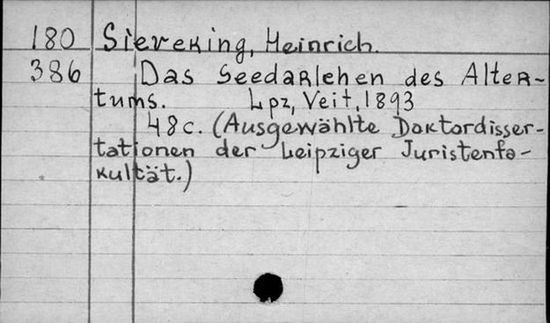 180 Sieveking, Heinrich.
386 Das Seedarlehen des Alter-
tums. Lpz, Veit, 1893
48c. (Ausgewählte Doktordisser-
tationen der Leipziger Juristenfa-
kultät.)